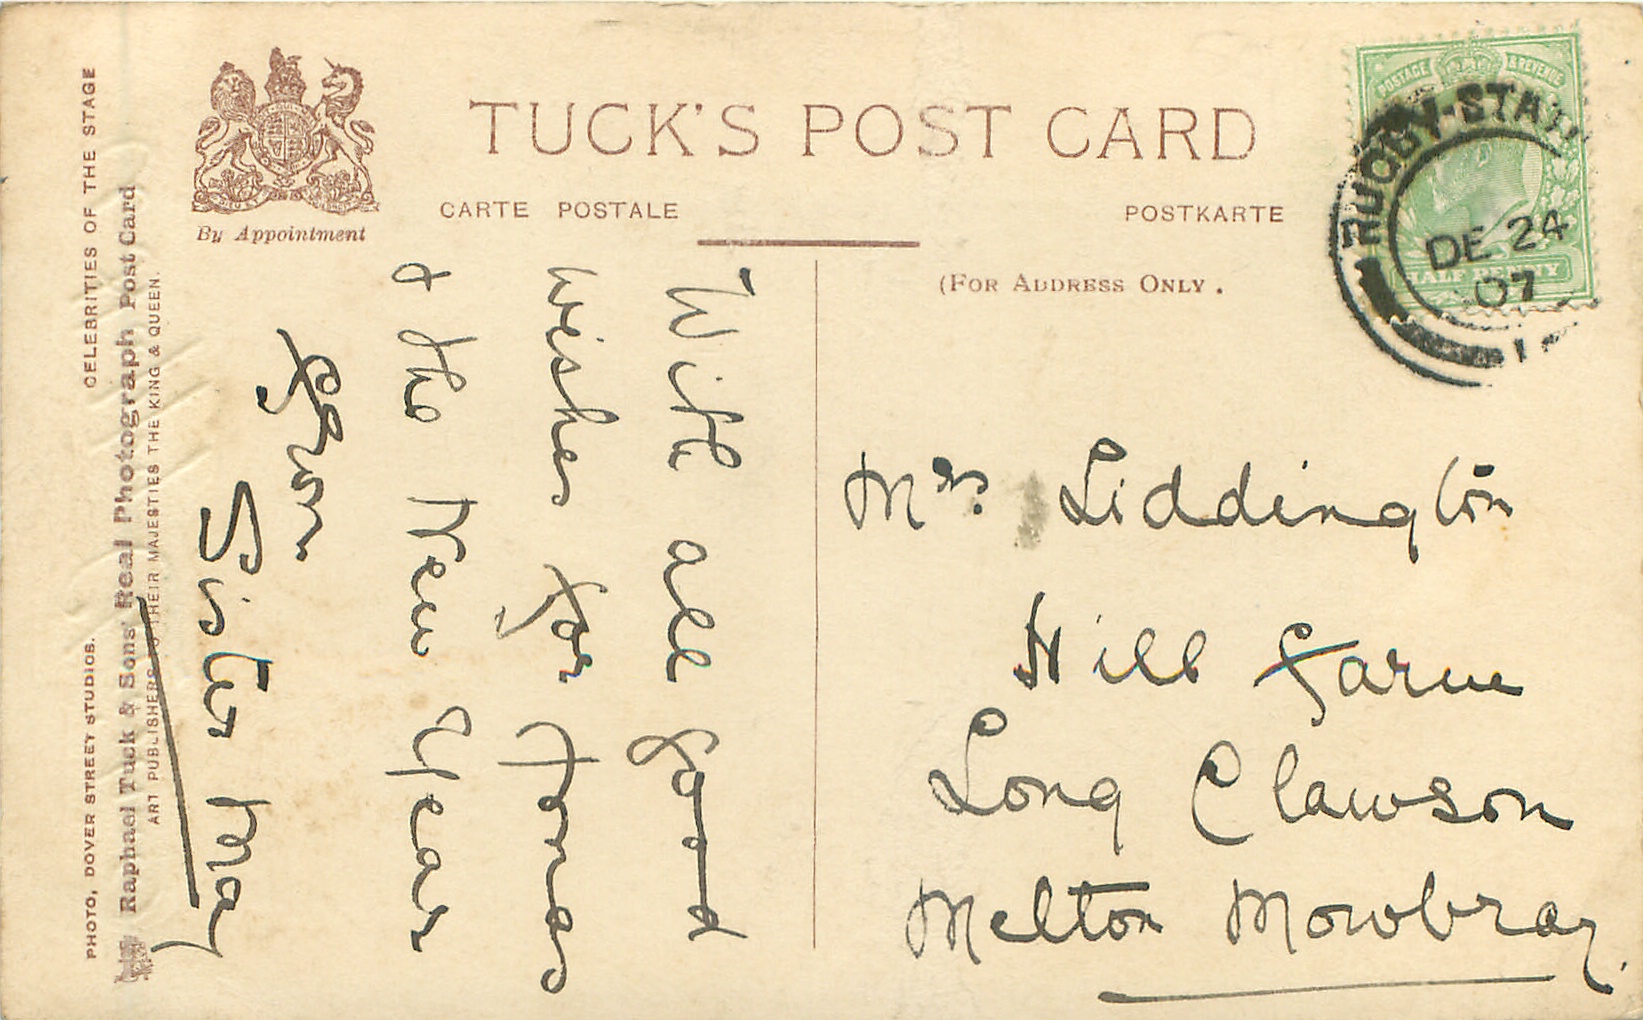 TUCK'S POST CARD
CARTE POSTALE
POSTKARTE
By Appointment
(FOR ADDRESS ONLY.
PHOTO, DOVER STREET STUDIOS. CELEBRITIES OF THE STAGE
Raphael Tuck & Sons' Real Photograph Post Card
ART PUBLISHERS TO THEIR MAJESTIES THE KING & QUEEN.
POSTAGE & REVENUE
HALF PENNY
RUGBY-STA
DE 24
07
With all good
wishes for Xmas
& the New Year
from
Sister May
Mrs. Liddington
Hill Farm
Long Clawson
Melton Mowbray.